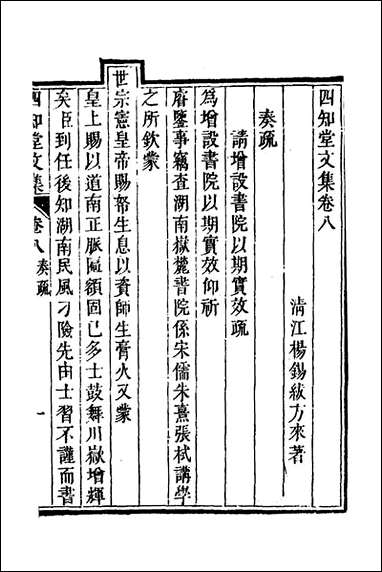 四知堂文集卷八
清江楊錫紱方來著
奏疏
請增設書院以期實效疏
為增設書院以期實效仰祈
睿鑒事竊查湖南嶽麓書院係宋儒朱熹張栻講學
之所欽蒙
世宗憲皇帝賜帑生息以資師生膏火又蒙
皇上賜以道南正脈匾額固已多士鼓舞川嶽增輝
矣臣到任後知湖南民風刁險先由士習不謹而書
四知堂文集 卷八 奏疏 一